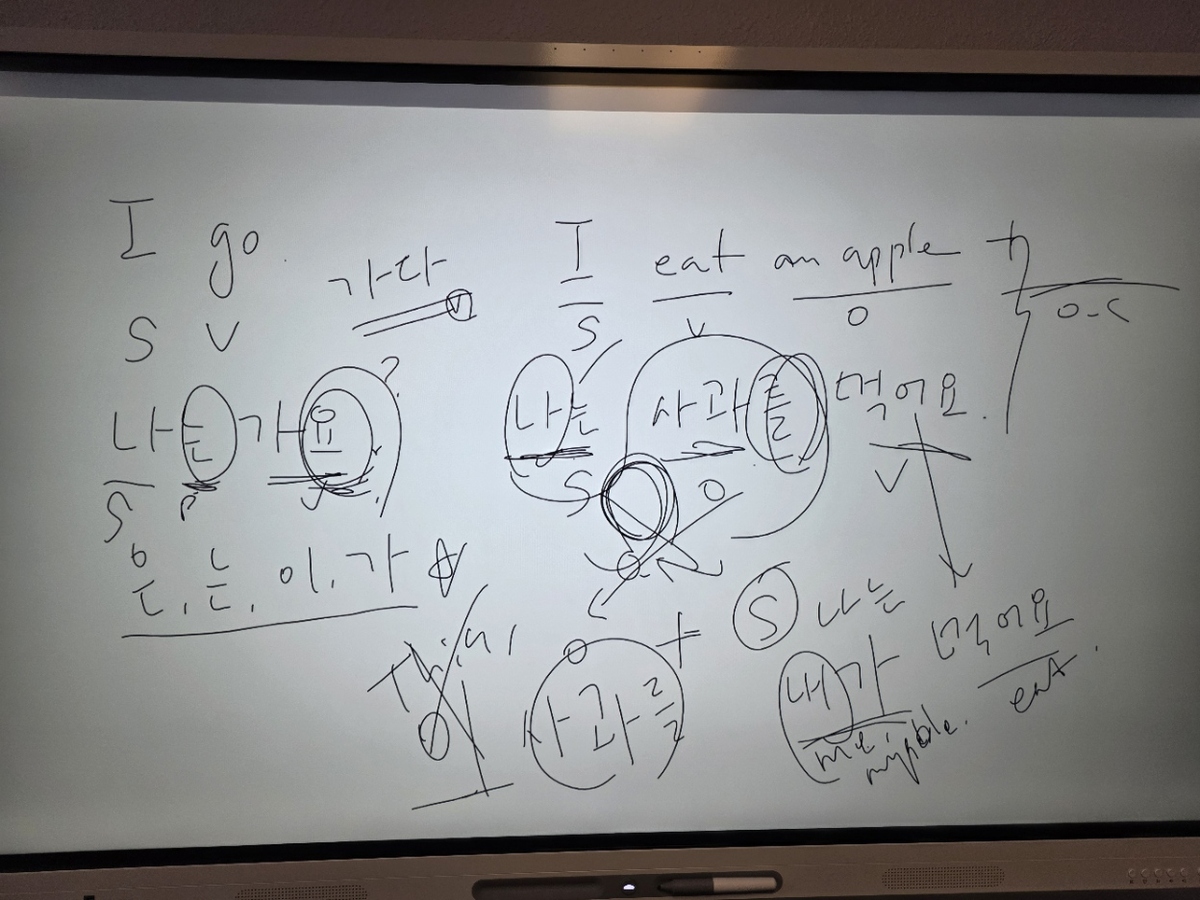 I go.
S V
가다
나는 가요?
S P V
은, 는, 이, 가
I eat an apple
S V O O.C
나는 사과를 먹어요.
S O V
O
사과를 + S 나는
내가 먹어요
me, eat.